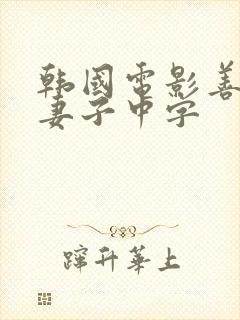 韩国电影善
妻子中字
蹿升华上